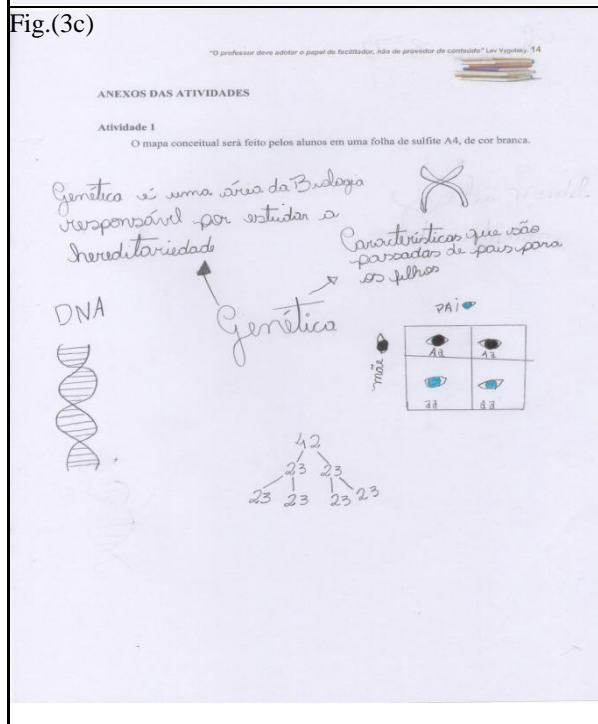 Fig.(3c)
"O professor deve adotar o papel de facilitador, não de provedor de conteúdo" Lev Vygotsky. 14
ANEXOS DAS ATIVIDADES
Atividade 1
O mapa conceitual será feito pelos alunos em uma folha de sulfite A4, de cor branca.
Genética é uma área da Biologia
responsável por estudar a
hereditariedade
Características que são
passadas de pais para
os filhos
DNA
Genética
PAI
mãe
Aa Aa
aa aa
42
23 23
23 23 23 23